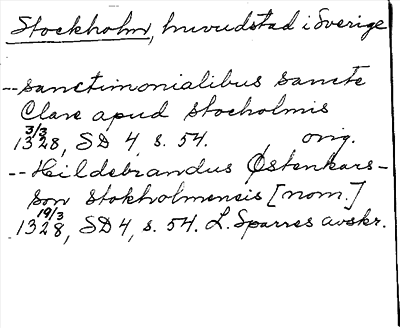 Stockholm, huvudstad i Sverige
-- sanctimonialibus sancte
Clare apud Stocholmis
3/3
1328, SD 4, s. 54. orig.
-- Hildebrandus Østenkars-
son Stokholmensis [nom.]
19/3
1328, SD 4, s. 54. L. Sparres avskr.